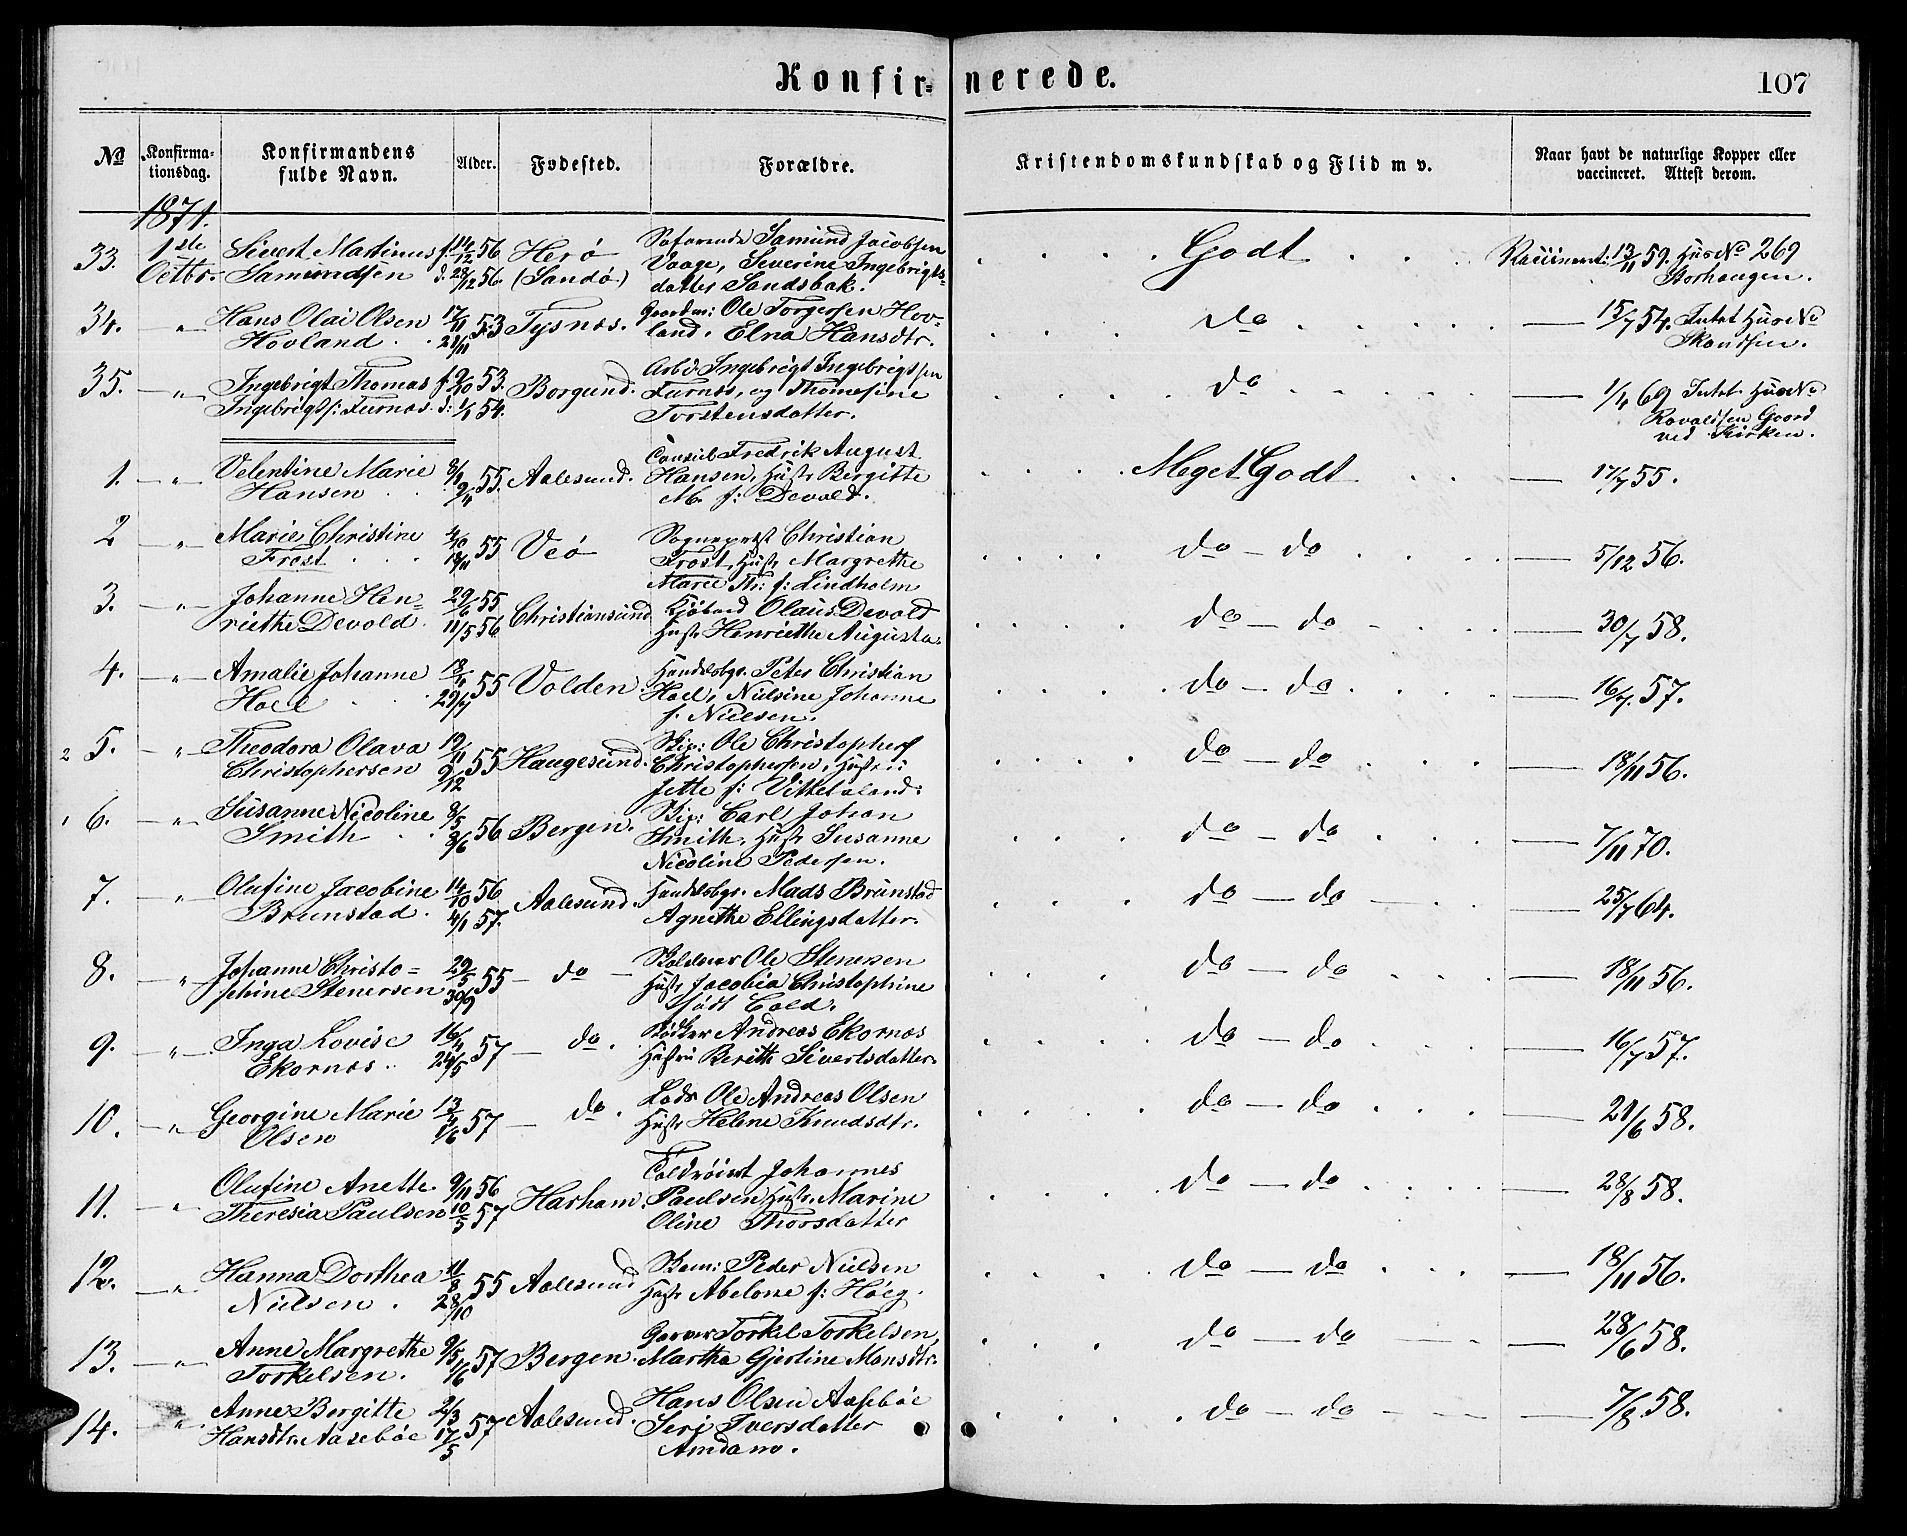 Konfir= nerede.
107
No
Konfirma-
tionsdag.
Konfirmandens
fulde Navn.
Alder.
Fødested.
Forældre.
Kristendomskundskab og Flid m v.
Naar havt de naturlige Kopper eller
vaccineret. Attest derom.
1871.
33. 1ste Sivert Martinus f 14/12 56 Herø Søfarende Samund Jacobsen Godt Vaccineret: 13/11 59. Hus No 269
Octbr. Samundsen d. 28/12 56. (Sandø) Vaage, Severine Ingebrigts- Storhaugen.
datter Sandsbak.
34. — " — Hans Olai Olsen 17/11 53 Tysnæs. Gaardm: Ole Torgersen Hov= do — 15/7 54. Intet Hus No
Hovland. 21/11 land. Elna Hansdtr. Skandsen.
35. — " — Ingebrigt Thomas f 9/10 53. Borgund. Arbd: Ingebrigt Ingebrigtsen do — 1/4 69 Intet Hus No
Ingebrigts: Furnæs. d: 1/1 54. Furnæs, og Thomesine Ravaldsen Gaard
Torstensdatter. ved Kirken.
1. — " — Velentine Marie 8/1 55. Aalesund. Consul Fredrik August Meget Godt — 17/7 55.
Hansen 9/4 Hansen, Hustr Bergitte
M. f: Devold.
2 — " — Marie Christine 4/10 55 Veø Sogneprest Christian do — do — 5/12 56.
Frost 18/11 Frost, Hustr Margrethe
Marie Th: f: Lindholm
3. — " — Johanne Hen= 29/6 55 Christiansund Kjøbmd Olaus Devold do — do — 30/7 58.
riethe Devold. 11/5 56. Hustr Henriethe Augusta.
4. — " — Amalie Johanne 18/4 55 Volden Handelsbgr. Peter Christian do — do — 16/7. 57.
Hoel 29/7 Hoel, Nielsine Johanne
f. Nielsen.
2 5. — " Theodora Olava 19/11 55 Haugesund. Skip: Ole Christophers do — do — 18/11 56.
Christophersen 9/12 Christophersen, Hustr:
Jette f: Vittetuland:
1 6. — " — Susanne Nicoline 8/5 56 Bergen. Skip: Carl Johan do — do — 7/11 70.
Smith 8/6 Smith, Hustr Susanne
Nicoline Pedersen.
7. — " — Olufine Jacobine 14/10 56 Aalesund. Handelsbgr. Mads Brunstad do — do — 25/7 64.
Brunstad. 4/1 57. Agnethe Ellingsdatter.
8. " Johanne Christo= 29/5 55 — do — Skolelærer Ole Stenersen do — do — 18/11 56.
phine Stenersen 30/9 Hustr Jacobia Christophine
født Cold.
9. — " — Inga Lovise 16/4 57 — do. Bødker Andreas Ekornæs do — do — 16/7 57.
Ekornæs. 24/5 Hustru Berithe Sivertsdatter.
10. — " — Georgine Marie 13/4 57 — do. Lods Ole Andreas Olsen do — do — 21/6 58.
Olsen 1/6 Hustr Helene Knudsdtr.
11. — " — Olufine Anette 9/11 56 Harham. Toldrøiert Johannes do — do — 28/8 58.
Theresia Paulsen 10/5 57 Paulsen Hustr. Marine
Oline Thorsdatter
12. — " — Hanna Dorthea 11/8 55 Aalesund Peder Nielsen do — do — 18/11 56.
Nielsen. 28/10 Hustr Abelone f: Høeg.
13. — " — Anne Margrethe 9/5 57 Bergen. Garver Torkel Torkelsen, do — do — 28/6 58.
Torkelsen. 1/6 Martha Gjertine Monsdtr.
14. " Anne Bergitte 2/3 57 Aalesund. Hans Olsen Aasebøe do — do — 7/8. 58.
Hansdtr. Aasebøe 17/5 Seri Iversdatter
Amdam.